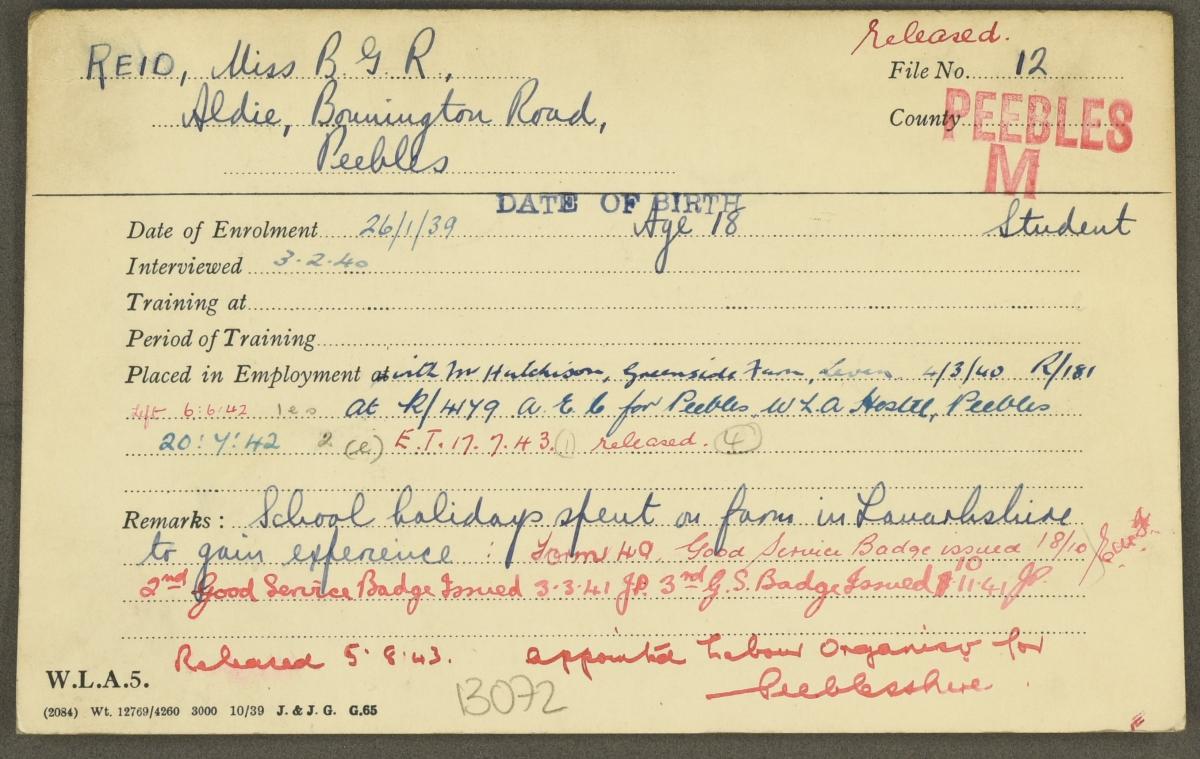 Released.
REID, Miss B. G. R,
File No. 12
Aldie, Bonnington Road,
County PEEBLES
Peebles
M
DATE OF BIRTH
Date of Enrolment 26/1/39 Age 18 Student
Interviewed 3.2.40
Training at
Period of Training
Placed in Employment at with Mr Hutchison, Greenside Farm, Leven 4/3/40 R/181
Left 6.6.42 at R/4179 A.E.C for Peebles, W L A Hostel, Peebles
20:7:42 2 (e) E.T. 17.7.43. (1) released. (4)
Remarks: School holidays spent on farm in Lanarkshire
to gain experience : Form 49. Good Service Badge issued 18/10
2nd Good Service Badge Issued 3.3.41 JP. 3rd G.S. Badge Issued 10 11.41 JP
Released 5.8.43. appointed Labour Organiser for
Peeblesshire
W.L.A.5.
13072
(2084) Wt. 12769/4260 3000 10/39 J. & J. G. G.65